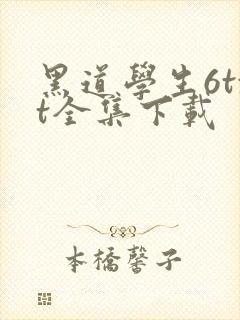 黑道學生6tx
t全集下載
本橋馨子